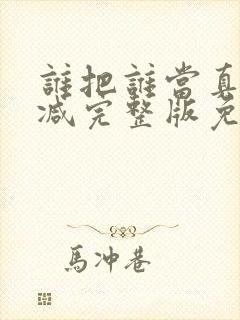 誰把誰當真
減完整版免
馬冲巷